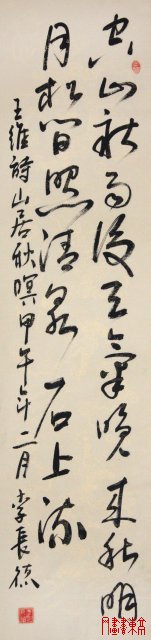 空山新雨後天氣晚来秋明
月松間照清泉石上流
王維詩山居秋暝甲午年二月李長德